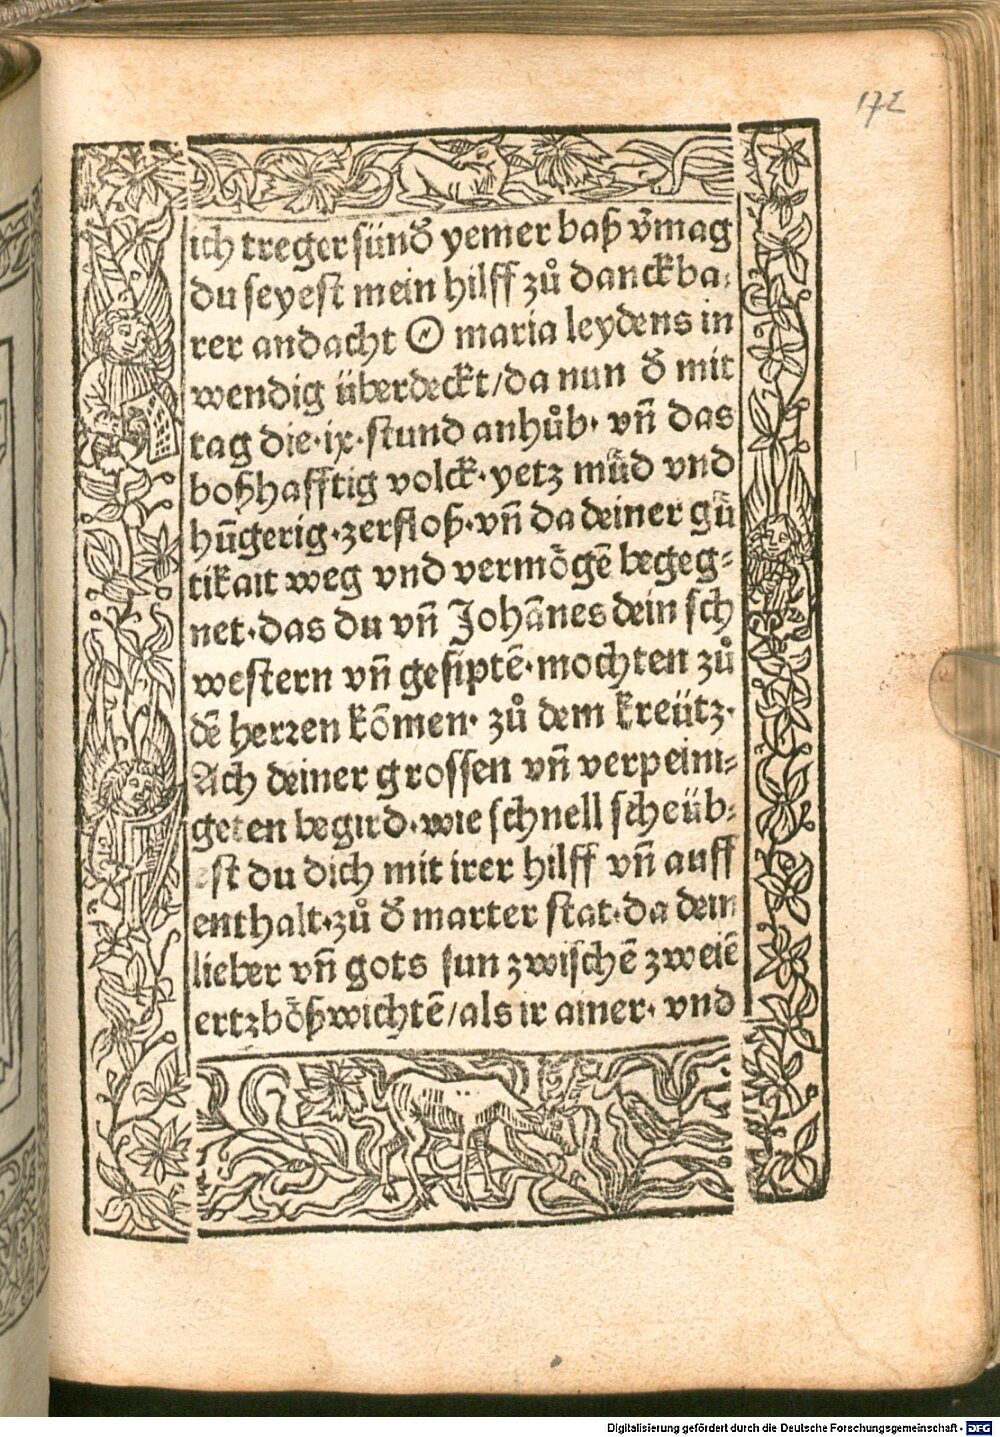 172
ich treger sünd̕ yemer baß v̕mag
du seyest mein hilff zů danckba⸗
rer andacht O maria leydens in
wendig überdeckt/da nun d̕ mit
tag die·ix·stund anhůb· vn̄ das
boßhafftig volck·yetz müd vnd
hūgerig·zerfloß·vn̄ da deiner gü
tikait weg vnd vermögē begeg⸗
net·das du vn̄ Johānes dein sch
western vn̄ gesiptē·mochten zů
dē herzen kōmen· zů dem kreütz·
Ach deiner grossen vn̄ verpeini⸗
geten begird·wie schnell scheüb⸗
est du dich mit irer hilff vn̄ auff
enthalt·zů d̕ marter stat·da dein
lieber vn̄ gots sun zwischē zweiē
ertzbößwichtē/als ir ainer· vnd
Digitalisierung gefördert durch die Deutsche Forschungsgemeinschaft - DFG